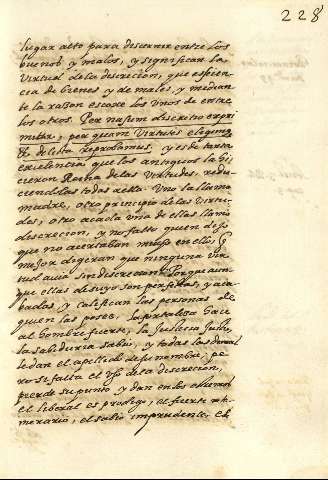 228
lugar alto para discernir entre los
buenos y malos, y significan la
virtud de la discrecion, que es
cia de bienes y de males, y median
te la razon escoxe los unos de entre
los otros. Per nasum discretio expri
mitur, per quam virtutes eligimus
delicta reprobamus. y es de tanta
excelencia que los antiguos la hi
cieron Reina de las virtudes, redu
ciendolas todas a ella. Uno la llama
madre, otro principio de las virtu
des, otro a cada una de ellas llamó
discrecion, y no falto quien dijo
que no acertaban mucho en ello, q
mejor dixeran que ninguna vir
tud avia sin discrecion. Porque aun
que ellas de suyo son perfectas, y aca
badas, y califican las personas de
quien las posee, la fortaleza hace
al hombre fuerte, la justicia justo,
la sabiduria sabio, y todas las demas
le dan el apellido de su nombre, pe
ro si falta el de la discrecion,
pierde su punto y dan en los extremos
el liberal es prodigo, el fuerte te
merario, el sabio imprudente, el